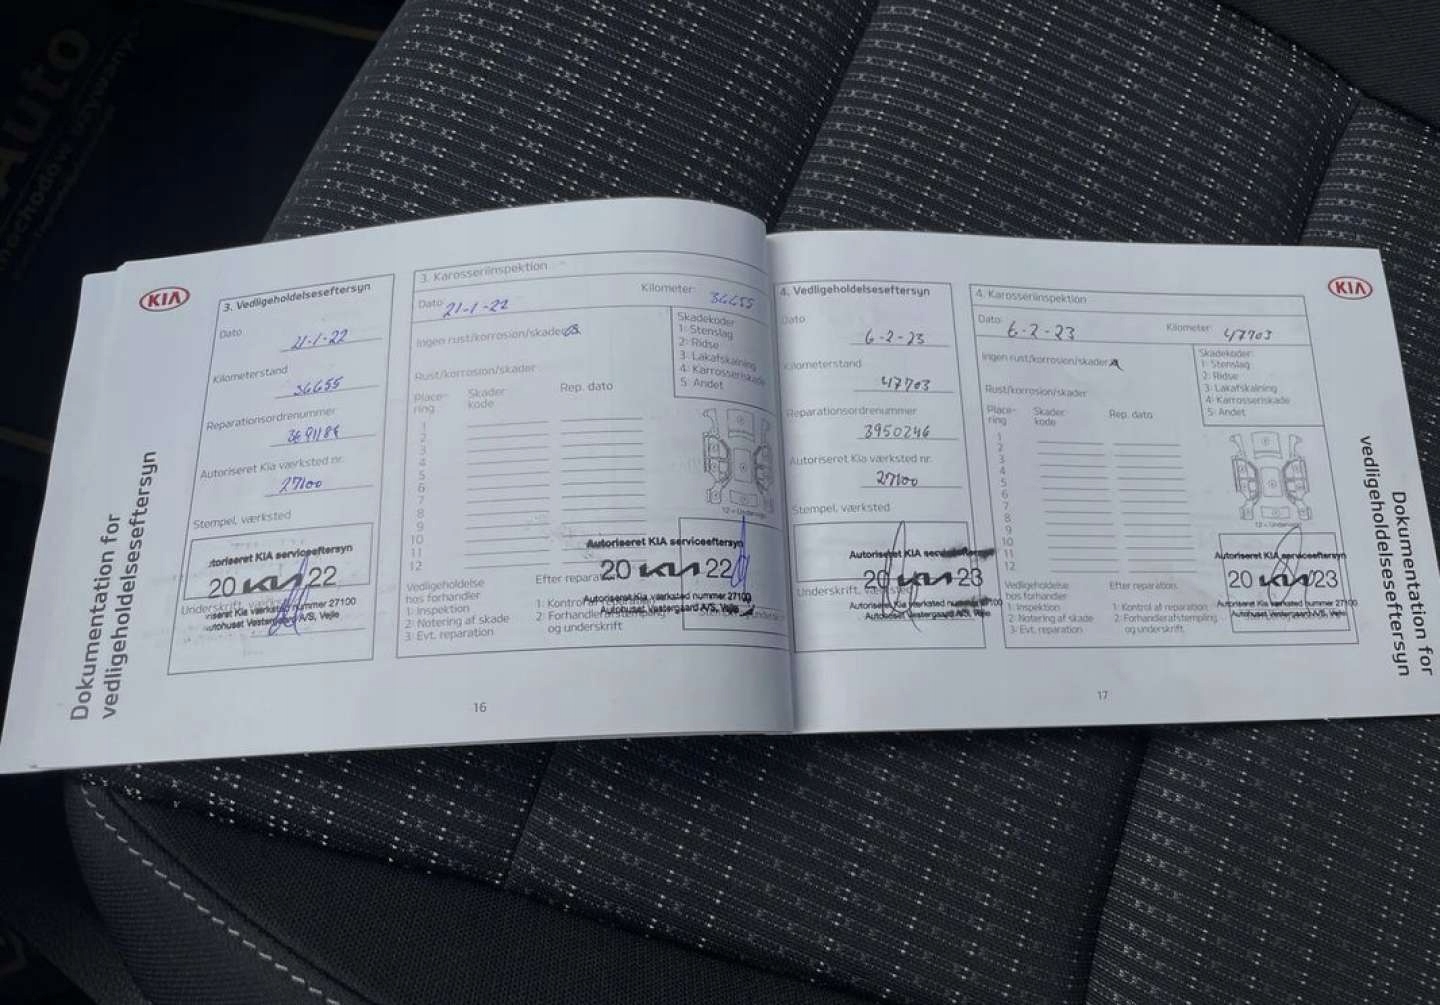 Auto
KIA
Dokumentation for
vedligeholdelseseftersyn
3. Vedligeholdelseseftersyn
Dato
21-1-22
Kilometerstand
36655
Reparationsordrenummer
Autoriseret Kia værksted nr.
27100
Stempel, værksted
toriseret KIA serviceeftersyn
20 KIA 22
Underskrift, værksted
riseret Kia værksted nummer 27100
utohuset Vestergaard A/S, Vejle
3. Karosseriinspektion
Dato 21-1-22
Kilometer: 36655
Ingen rust/korrosion/skader
Rust/korrosion/skader
Place-
ring
Skader
kode
Rep. dato
1
2
3
4
5
6
7
8
9
10
11
12
Skadekoder
1: Stenslag
2: Ridse
3: Lakafskalning
4: Karrosseriskade
5: Andet
12 = Undervogn
Vedligeholdelse
hos forhandler
1: Inspektion
2: Notering af skade
3: Evt. reparation
Efter repara
1: Kontrol af
2: Forhandlerafstempling
og underskrift
Autoriseret KIA serviceeftersyn
20 KIA 22
Autoriseret Kia værksted nummer 27100
Autohuset Vestergaard A/S, Vejle
16
4. Vedligeholdelseseftersyn
Dato
6-2-23
Kilometerstand
47703
Reparationsordrenummer
3950246
Autoriseret Kia værksted nr.
27100
Stempel, værksted
Autoriseret KIA serviceeftersyn
20 KIA 23
Underskrift,
Autoriseret Kia værksted nummer 27100
Autohuset Vestergaard A/S, Vejle
4. Karosseriinspektion
Dato: 6-2-23
Kilometer: 47703
Ingen rust/korrosion/skader
Rust/korrosion/skader
Place-
ring
Skader
kode
Rep. dato
1
2
3
4
5
6
7
8
9
10
11
12
Skadekoder:
1: Stenslag
2: Ridse
3: Lakafskalning
4: Karrosseriskade
5: Andet
12 = Undervogn
Vedligeholdelse
hos forhandler
1: Inspektion
2: Notering af skade
3: Evt. reparation
Efter reparation:
1: Kontrol af reparation
2: Forhandlerafstempling
og underskrift
Autoriseret KIA serviceeftersyn
20 KIA 23
Autoriseret Kia værksted nummer 27100
Autohuset Vestergaard A/S, Vejle
17
KIA
Dokumentation for
vedligeholdelseseftersyn